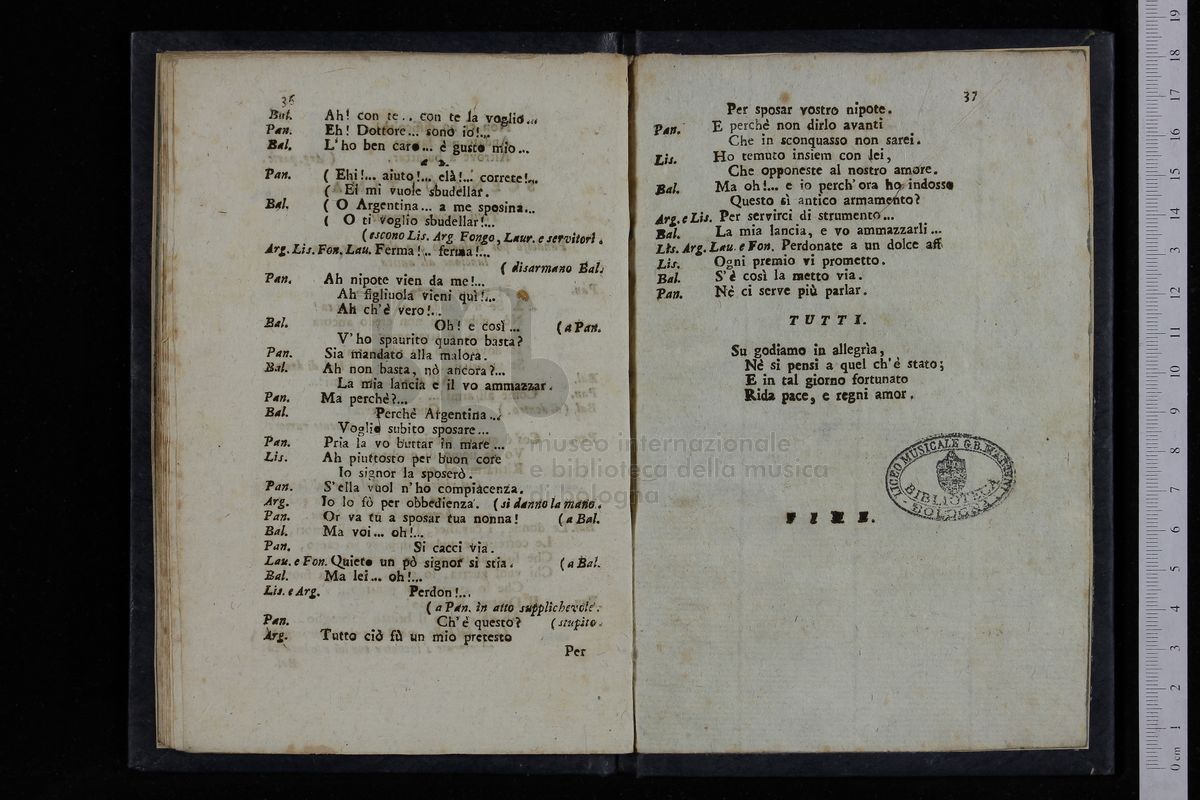 36
Bal. Ah! con te.. con te la voglio...
Pan. Eh! Dottore... sono io!...
Bal. L'ho ben caro... è gusto mio...
a 2.
Pan. ( Ehi!... aiuto!... elà!... correte!...
( Ei mi vuole sbudellar.
Bal. ( O Argentina... a me sposina...
( O ti voglio sbudellar!...
(escono Lis. Arg Fongo, Laur. e servitori.
Arg. Lis. Fon. Lau. Ferma!.. ferma!...
( disarmano Bal.
Pan. Ah nipote vien da me!...
Ah figliuola vieni quì!...
Ah ch'è vero!...
Bal. Oh! e così... (a Pan.
V'ho spaurito quanto basta?
Pan. Sia mandato alla malora.
Bal. Ah non basta, nò ancora?...
La mia lancia e il vo ammazzar.
Pan. Ma perchè?...
Bal. Perchè Argentina...
Voglio subito sposare...
Pan. Pria la vo buttar in mare...
Lis. Ah piuttosto per buon core
Io signor la sposerò.
Pan. S'ella vuol n'ho compiacenza.
Arg. Io lo fò per obbedienza. (si danno la mano.
Pan. Or va tu a sposar tua nonna! (a Bal.
Bal. Ma voi... oh!...
Pan. Si cacci via.
Lau. e Fon. Quieto un pò signor si stia. (a Bal.
Bal. Ma lei... oh!...
Lis. e Arg. Perdon!...
(a Pan. in atto supplichevole.
Pan. Ch'è questo? (stupito.
Arg. Tutto ciò fù un mio pretesto
Per
37
Per sposar vostro nipote.
Pan. E perchè non dirlo avanti
Che in sconquasso non sarei.
Lis. Ho temuto insiem con lei,
Che opponeste al nostro amore.
Bal. Ma oh!... e io perch'ora ho indosso
Questo sì antico armamento?
Arg. e Lis. Per servirci di strumento...
Bal. La mia lancia, e vo ammazzarli...
Lis. Arg. Lau. e Fon. Perdonate a un dolce aff
Lis. Ogni premio vi prometto.
Bal. S'è così la metto via.
Pan. Nè ci serve più parlar.
TUTTI.
Su godiamo in allegrìa,
Nè si pensi a quel ch'è stato;
E in tal giorno fortunato
Rida pace, e regni amor.
FINE.
LICEO MUSICALE G.B. MARTINI
BIBLIOTECA
BOLOGNA
museo internazionale
e biblioteca della musica
di bologna
0 cm 1 2 3 4 5 6 7 8 9 10 11 12 13 14 15 16 17 18 19